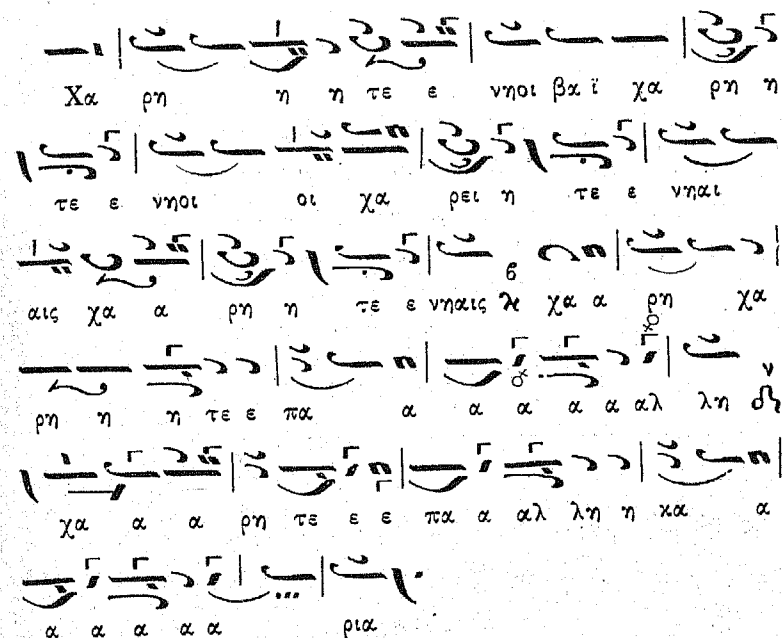 Χα ρη η η τε ε νηοι βα ϊ χα ρη η
τε ε νηοι οι χα ρει η τε ε νηαι
αις χα α ρη η τε ε νηαις χα α ρη χα
ρη η η τε ε πα α α α α α αλ λη
χα α α ρη τε ε ε πα α αλ λη η κα α
α α α α α ρια